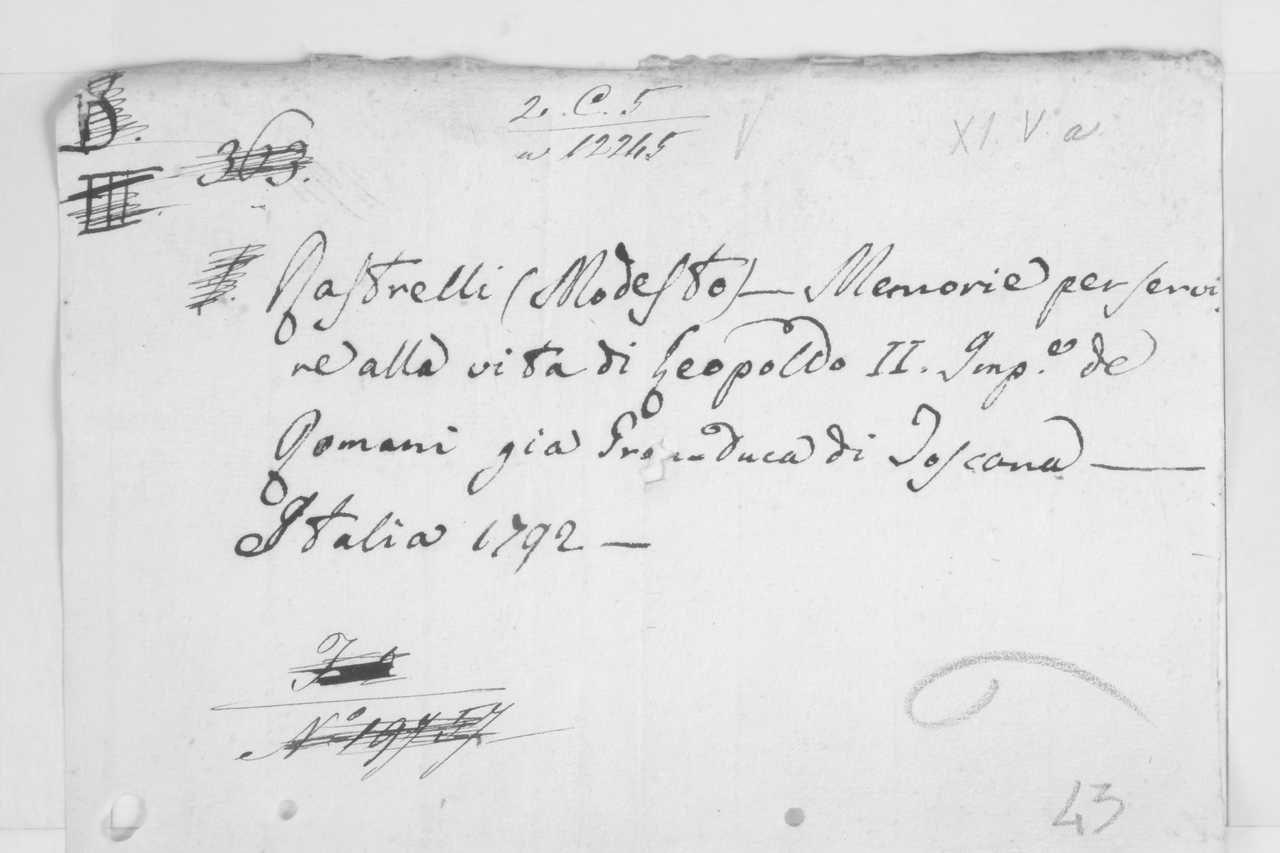 B.
2. C. 5
XI. V. a
363.
a 12245
III.
Rastrelli (Modesto) — Memorie per servi
re alla vita di Leopoldo II. Imp.e de
Romani gia Granduca di Toscana —
Italia 1792 —
No 19757
43